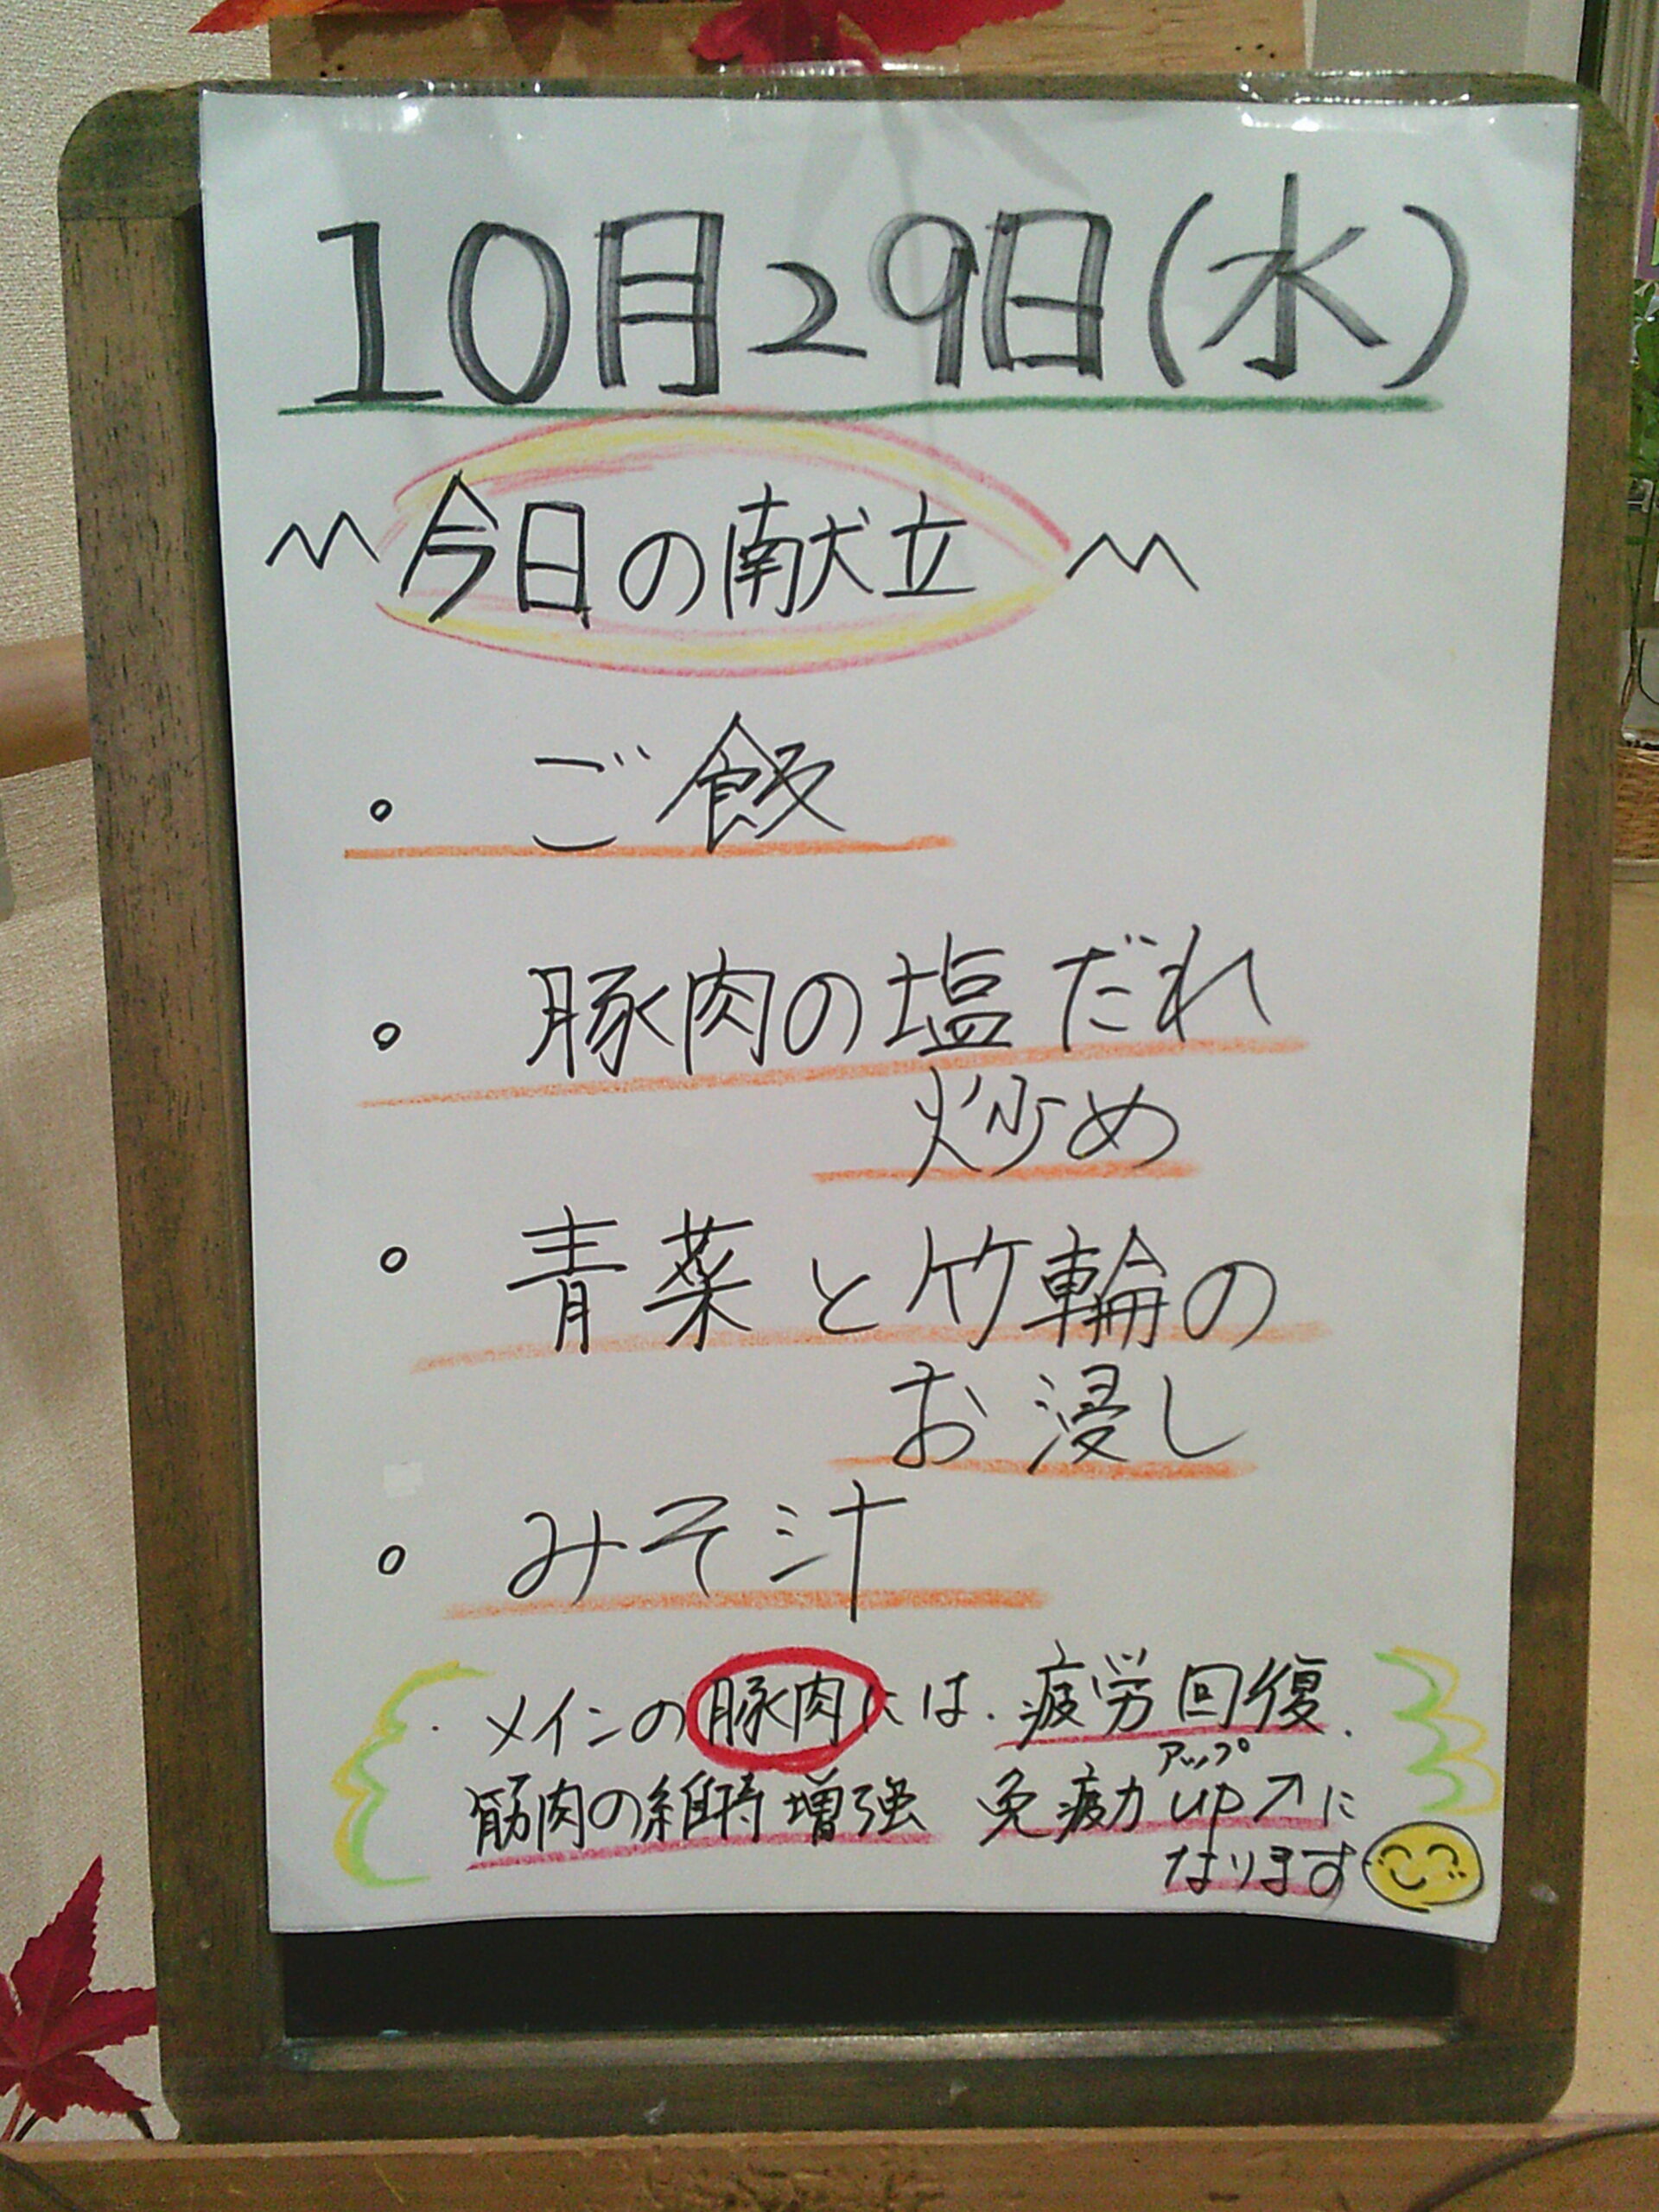 10月29日(水)
今日の献立
。ご飯
。豚肉の塩だれ
炒め
。青菜と竹輪の
お浸し
。みそ汁
・メインの豚肉には、疲労回復、
アップ
筋肉の維持増強 免疫力up↗に
なります